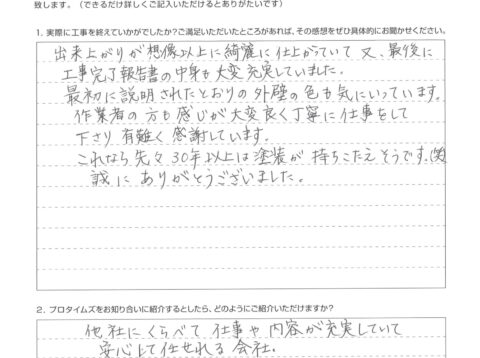 致します。（できるだけ詳しくご記入いただけるとありがたいです）
1. 実際に工事を終えていかがでしたか?ご満足いただいたところがあれば、その感想をぜひ具体的にお聞かせください。
出来上がりが想像以上に綺麗に仕上がっていて 又、最後に
工事完了報告書の中身も大変充実していました。
最初に説明されたとおりの外壁の色も気にいっています。
作業者の方も感じが大変良く丁寧に仕事をして
下さり 有難く感謝しています。
これなら先々30年以上は塗装が 持ちこたえそうです。(笑)
誠に ありがとうございました。
2. プロタイムズをお知り合いに紹介するとしたら、どのようにご紹介いただけますか?
他社にくらべて 仕事や 内容が充実していて
安心して任せれる 会社。